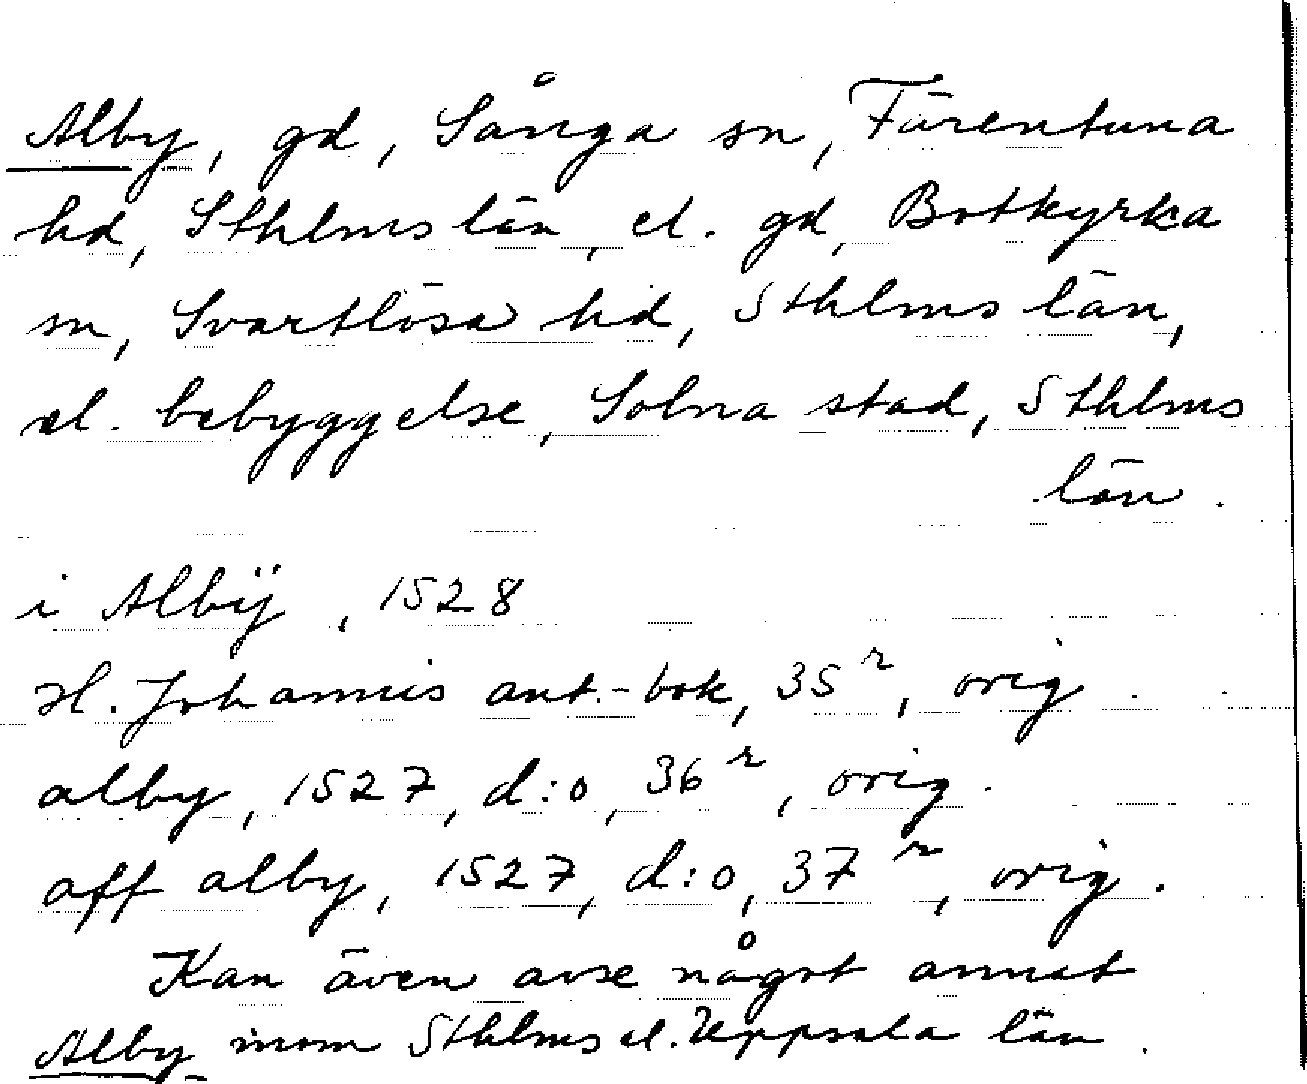 Alby, gd, Sånga sn, Färentuna
hd, Sthlms län, el. gd, Botkyrka
sn, Svartlösa hd, Sthlms län,
el. bebyggelse, Solna stad, Sthlms
län.
i Albÿ, 1528
H. Johannis ant.-bok, 35r, orig.
alby, 1527, d:o, 36r, orig.
aff alby, 1527, d:o, 37r, orig.
Kan även avse något annat
Alby inom Sthlms el. Uppsala län.